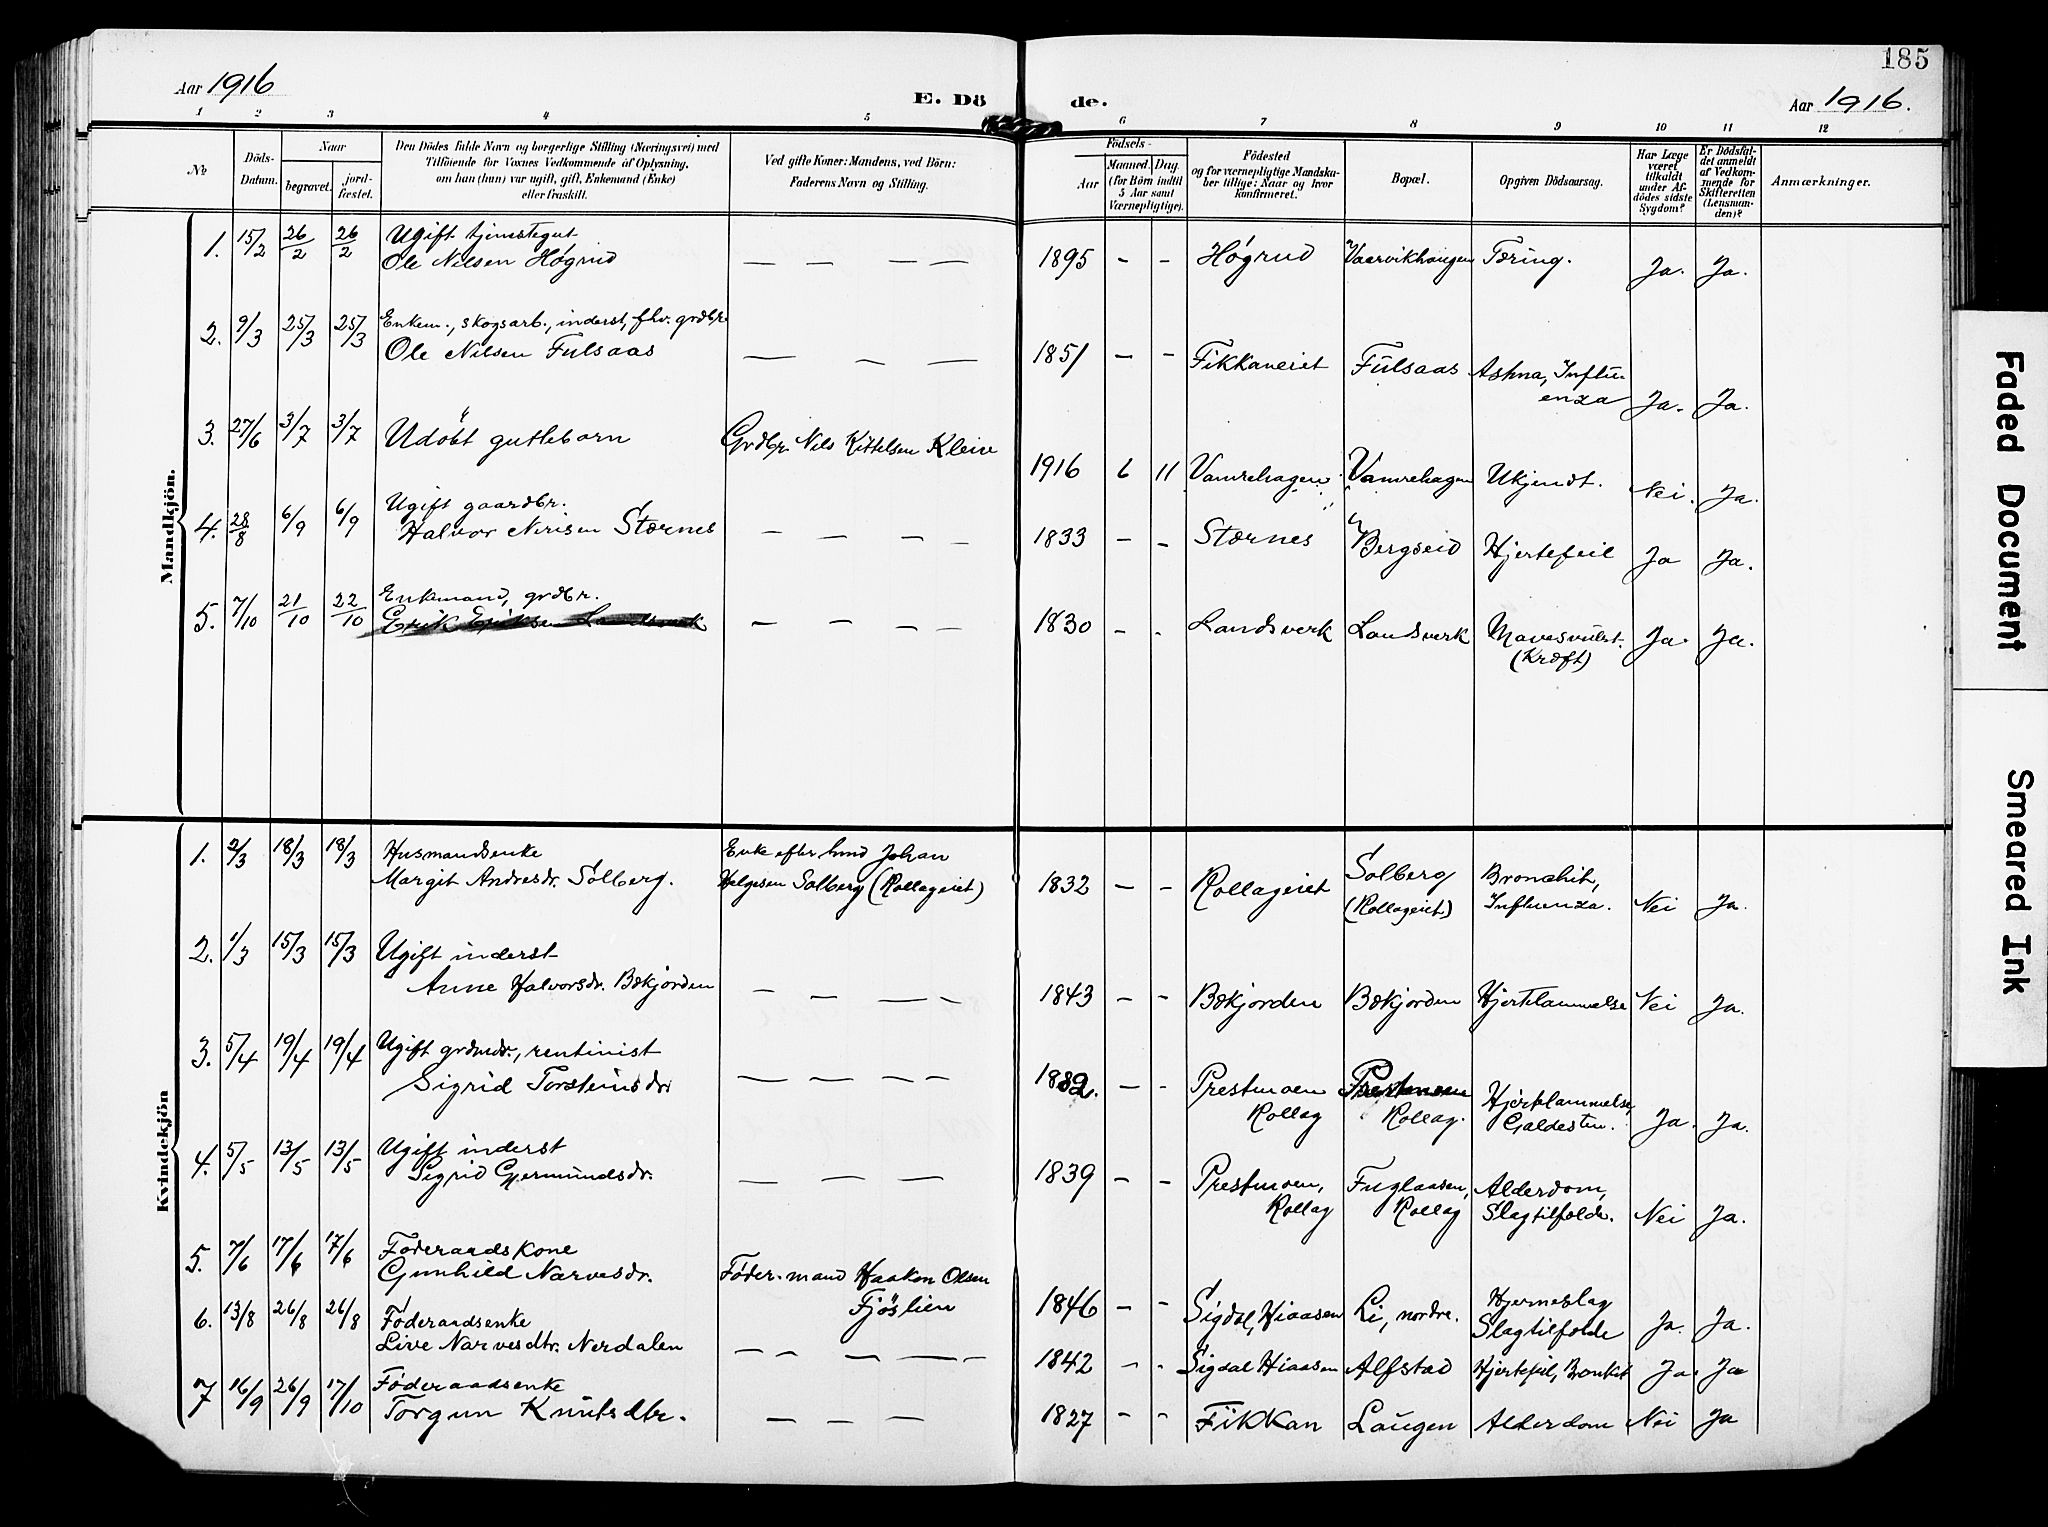 185
Aar 1916
E. Dö de.
Aar 1916.
1 2 3 4 5 6 7 8 9 10 11 12
No
Döds-Datum.
Naar
begravet.
jord-fæstet.
Den Dödes fulde Navn og borgerlige Stilling (Næringsvei) med
Tilföiende for Voxnes Vedkommende af Oplysning,
om han (hun) var ugift, gift, Enkemand (Enke)
eller fraskilt.
Ved gifte Koner: Mandens, ved Börn:
Faderens Navn og Stilling.
Födsels-
Aar
Maaned. Dag.
(for Börn indtil
5 Aar samt
Værnepligtige).
Födested
og for værnepligtige Mandska-
ber tillige: Naar og hvor
konfirmeret.
Bopæl.
Opgiven Dödsaarsag.
Har Læge
været
tilkaldt
under Af-
dödes sidste
Sygdom?
Er Dödsfal-
det anmeldt
af Vedkom-
mende for
Skifteretten
(Lensman-
den)?
Anmærkninger.
Mandkjön.
1. 15/2 26/2 26/2 Ugift tjenestegut
Ole Nilsen Høgrud — — — — 1895 - - Høgrud Vaarvikhaugen Tæring. Ja. Ja.
2. 9/3 25/3 25/3 Enkem., skogsarb., inderst, fhv. grdbr.
Ole Nilsen Fulsaas — — — 1851 - - Fikkaneiet Fulsaas Astma, Influ-
enza Ja. Ja.
3. 27/6 3/7 3/7 Udøbt guttebarn Grdbr. Nils Kittelsen Kleive
1916 6 11 Vamrehagen Vamrehagen Ukjendt. Nei. Ja.
4. 28/8 6/9 6/9 Ugift gaardbr.
Halvor Nirisen Stærnes — — — — 1833 - - Stærnes Bergseid Hjertefeil Ja Ja.
5. 7/10 21/10 22/10 Enkemand, grdbr.
Erik Eriksen Landsverk — — — — 1830 - - Landsverk Landsverk Mavesvulst. Ja. Ja.
(Kræft)
Kvindekjön
1. 2/3 18/3 18/3 Husmandsenke Enke efter hmd Johan
Margit Andresdr. Solberg. Helgesen Solberg (Rollageiet) 1832 - - Rollageiet Solberg Bronchit,
(Rollageiet) Influenza. Nei Ja.
2. 1/3 15/3 15/3 Ugift inderst
Anne Halvorsdr. Bækjorden — — — — 1843 - - Bækjorden Bækjorden Hjertelammelse Nei Ja.
3. 5/4 19/4 19/4 Ugift grdmdr., rentinist
Sigrid Torsteinsdr. — — — — 1882. - - Prestmoen Prestmoen Hjertelammelse,
Rollag Rollag. Galdesten. Ja. Ja.
4. 5/5 13/5 13/5 Ugift inderst
Sigrid Gjermundsdr. — — — 1839 - - Prestmoen, Fuglaasen, Alderdom,
Rollag Rollag Slagtilfælde. Nei Ja.
5. 7/6 17/6 17/6 Føderaadskone
Gunhild Narvesdr. Føder.mand Haakon Olsen
Fjøslien 1846 - - Sigdal, Hiaasen Li, nordre. Hjerneslag
Slagtilfælde Ja. Ja.
6. 13/8 26/8 26/8 Føderaadsenke
Live Narvesdtr. Nerdalen — — — — 1842 - - Sigdal Hiaasen Alfstad Hjertefeil, Bronkit Ja. Ja
7 16/9 26/9 17/10 Føderaadsenke
Torgun Knutsdtr. — — — 1827 - - Fikkan Laugen Alderdom Nei Ja
Faded Document
Smeared Ink